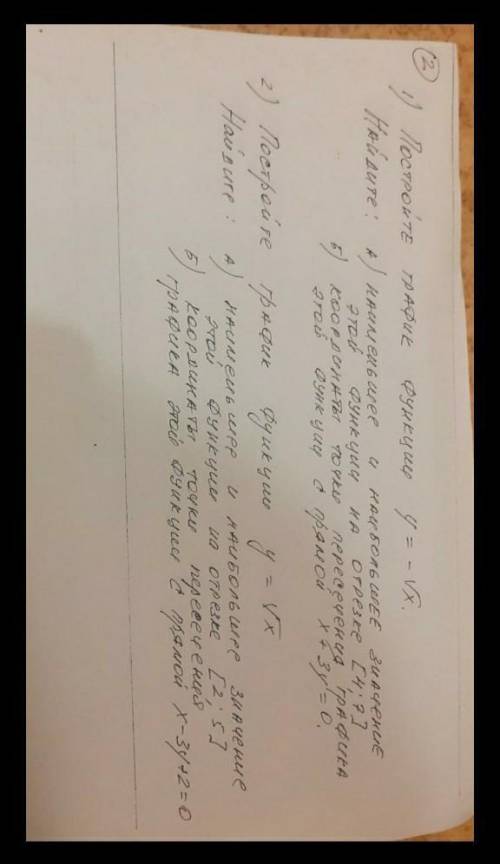 ②
1) Постройте график функции y = -√x.
Найдите: А) наименьшее и наибольшее значение
этой функции на отрезке [4; 7]
Б) координаты точки пересечения графика
этой функции с прямой x + 3y = 0.
2) Постройте график функции y = √x
Найдите: А) наименьшее и наибольшее значение
этой функции на отрезке [2; 5]
Б) координаты точки пересечения
графика этой функции с прямой x - 3y + 2 = 0